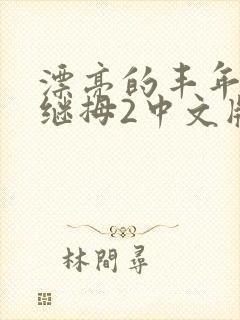 漂亮的丰年
继拇2中文版
林間尋